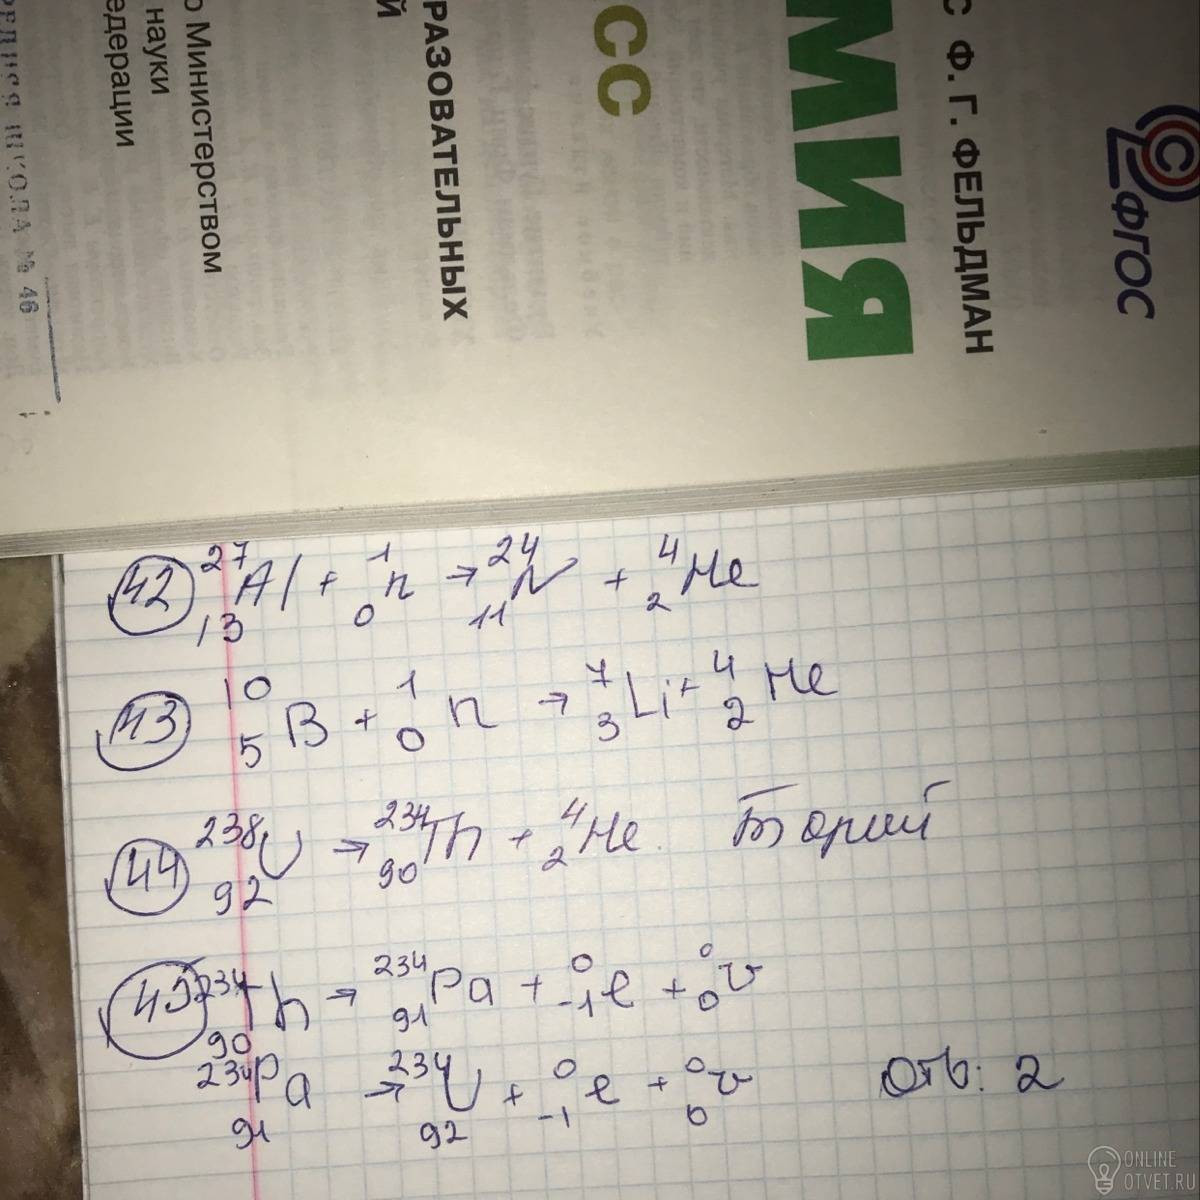 С Ф. Г. ФЕЛЬДМАН
ФГОС
МИЯ
СС
РАЗОВАТЕЛЬНЫХ
Й
о Министерством
науки
едерации
РЕДНЯЯ ШКОЛА № 46
42 ²⁷₁₃Al + ¹₀n → ²⁴₁₁N + ⁴₂He
43 ¹⁰₅B + ¹₀n → ⁷₃Li + ⁴₂He
44 ²³⁸₉₂U → ²³⁴₉₀Th + ⁴₂He. Торий
45 ²³⁴₉₀Th → ²³⁴₉₁Pa + ⁰₋₁e + ⁰₀v
²³⁴₉₁Pa → ²³⁴₉₂U + ⁰₋₁e + ⁰₀v Отв: 2
ONLINE
OTVET.RU